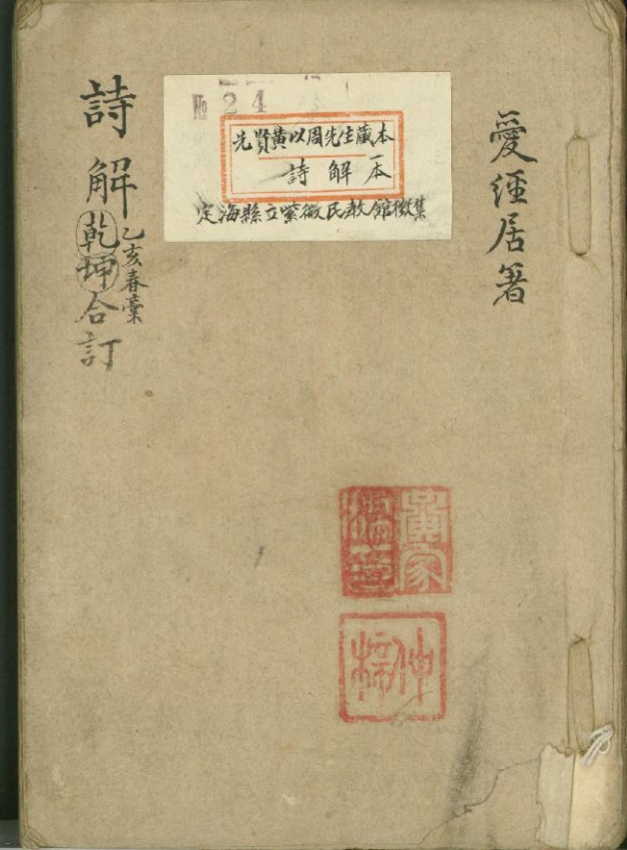 愛經居箸
№ 24
先賢黃以周先生藏本
詩解 一本
定海縣立紫微民教館徵集
詩解
乙亥春稾
乾坤合訂